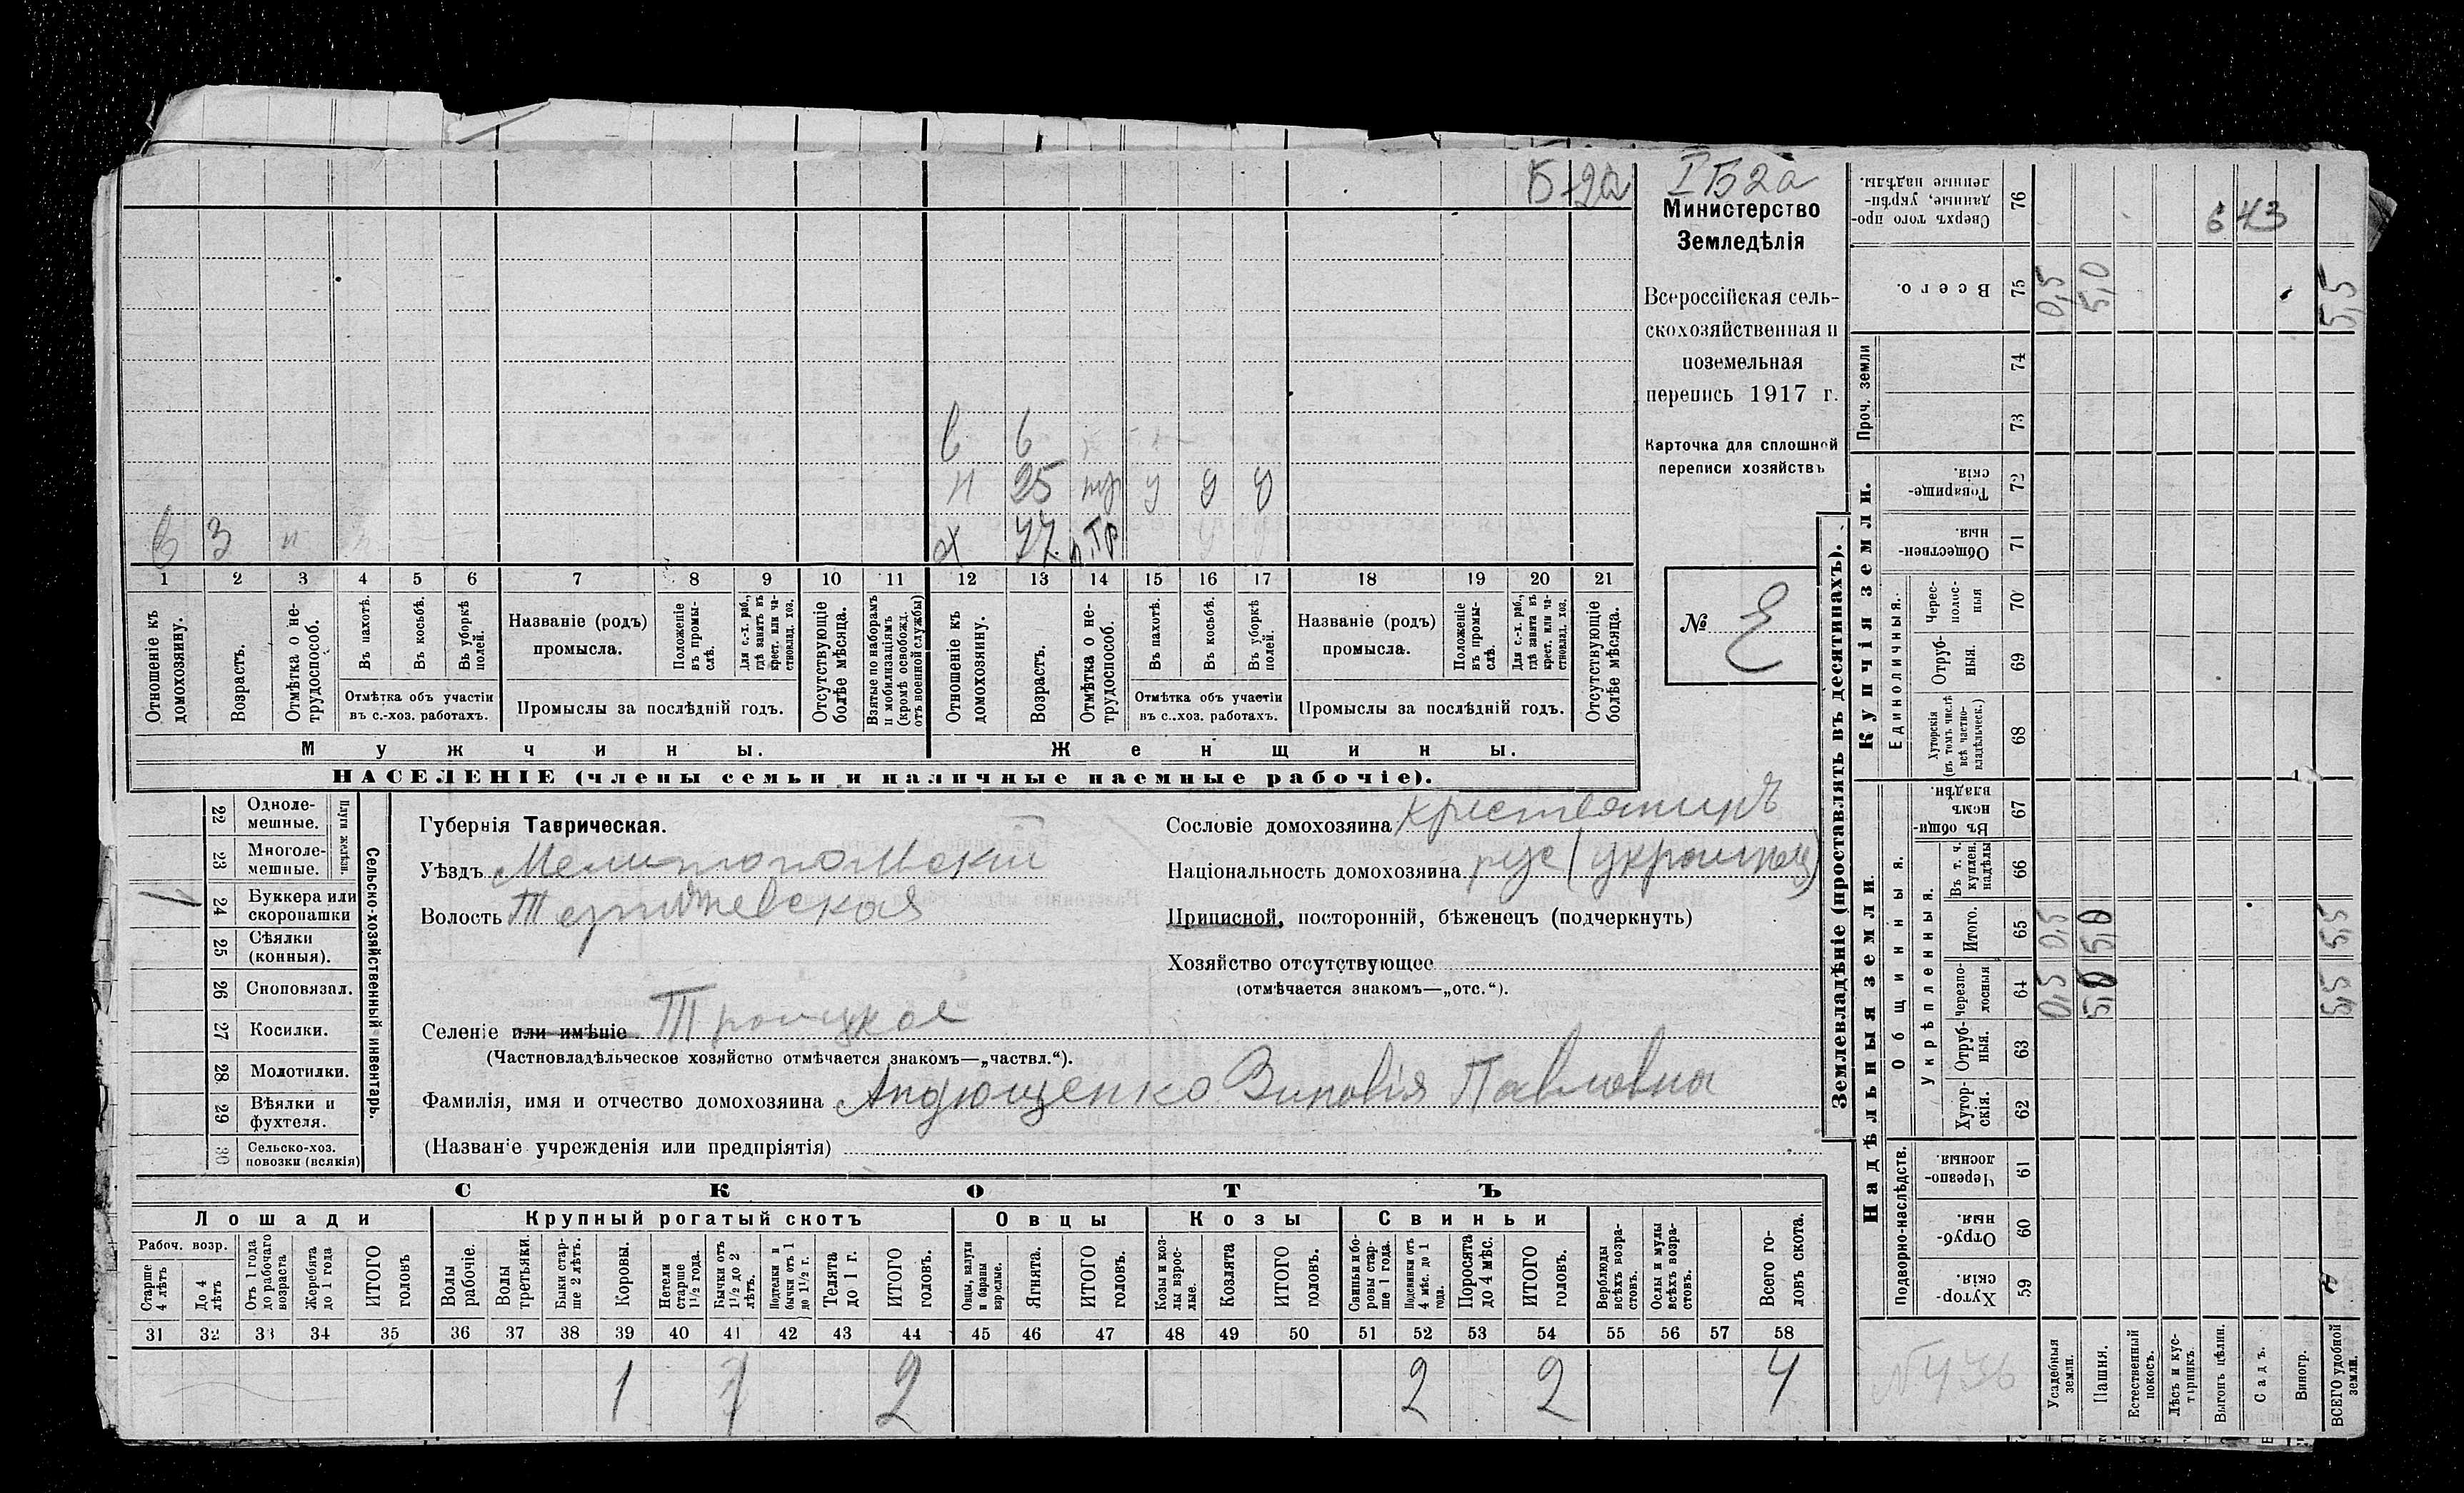 Б-2а
в 6
н 25 тр у у у
в 3 н
х 77 н.тр у у
1 2 3 4 5 6 7 8 9 10 11 12 13 14 15 16 17 18 19 20 21
Отношеніе къ домохозяину.
Возрастъ.
Отмѣтка о нетрудоспособ.
Въ пахотѣ.
Въ косьбѣ.
Въ уборкѣ полей.
Отмѣтка объ участіи въ с.-хоз. работахъ.
Названіе (родъ) промысла.
Положеніе въ промыслѣ.
Для с.-х. раб., гдѣ занятъ въ крест. или частновлад. хоз.
Промыслы за послѣдній годъ.
Отсутствующіе болѣе мѣсяца.
Взятые по наборамъ и мобилизаціямъ (кромѣ освобожд. отъ военной службы)
Отношеніе къ домохозяину.
Возрастъ.
Отмѣтка о нетрудоспособ.
Въ пахотѣ.
Въ косьбѣ.
Въ уборкѣ полей.
Отмѣтка объ участіи въ с.-хоз. работахъ.
Названіе (родъ) промысла.
Положеніе въ промыслѣ.
Для с.-х. раб., гдѣ занята въ крест. или частновлад. хоз.
Промыслы за послѣдній годъ.
Отсутствующіе болѣе мѣсяца.
Мужчины. Женщины.
НАСЕЛЕНІЕ (члены семьи и наличные наемные рабочіе).
I Б 2а
Министерство
Земледѣлія
Всероссійская сель-
скохозяйственная и
поземельная
перепись 1917 г.
Карточка для сплошной
переписи хозяйствъ
№
22 Одноле-
мешные.
23 Многоле-
мешные.
Плуги желѣзн.
24 Буккера или
скоропашки
25 Сѣялки
(конныя).
26 Сноповязал.
27 Косилки.
28 Молотилки.
29 Вѣялки и
фухтеля.
30 Сельско-хоз.
повозки (всякія)
Сельско-хозяйственный инвентарь.
Губернія Таврическая.
Уѣздъ Мелитопольскій
Волость
Селеніе или имѣніе Троицкое
(Частновладѣльческое хозяйство отмѣчается знакомъ—„частвл.“).
Фамилія, имя и отчество домохозяина Андющенко Зиновія Павловна
(Названіе учрежденія или предпріятія)
Сословіе домохозяина крестьянинъ
Національность домохозяина рус (украинец)
Приписной, посторонній, бѣженецъ (подчеркнуть)
Хозяйство отсутствующее
(отмѣчается знакомъ—„отс.“).
СКОТЪ
Лошади Крупный рогатый скотъ Овцы Козы Свиньи
Рабоч. возр.
Старше 4 лѣтъ
До 4 лѣтъ
Отъ 1 года до рабочаго возраста
Жеребята до 1 года
ИТОГО головъ
Волы рабочіе.
Волы третьяки.
Быки старше 2 лѣтъ.
Коровы.
Нетели старше 1½ года.
Бычки отъ 1½ до 2 лѣтъ.
Подтелки и бычки отъ 1 до 1½ г.
Телята до 1 г.
ИТОГО головъ.
Овцы, валухи и бараны взрослые.
Ягнята.
ИТОГО головъ.
Козы и козлы взрослые.
Козлята
ИТОГО головъ.
Свиньи и боровы старше 1 года.
Подсвинки отъ 4 мѣс. до 1 года.
Поросята до 4 мѣс.
ИТОГО головъ.
Верблюды всѣхъ возрастовъ.
Ослы и мулы всѣхъ возрастовъ.
Всего головъ скота.
31 32 33 34 35 36 37 38 39 40 41 42 43 44 45 46 47 48 49 50 51 52 53 54 55 56 57 58
1 1 2 2 2 4
Землевладѣніе (проставлять въ десятинахъ).
Купчія земли.
Надѣльныя земли.
Проч. земли
Единоличныя.
Общинныя.
Укрѣпленныя.
Подворно-наслѣдств.
76 Сверхъ того проданные, укрѣпленные надѣлы.
643
75 Всего. 0,5 5,0 5,5
74
73
72 Товарищескія.
71 Общественныя.
70 Чересполосныя
69 Отрубныя.
68 Хуторскія (въ томъ числѣ всѣ частновладѣльческ.)
67 Въ общинномъ владѣн.
66 Въ т. ч. куплен. надѣлы
65 Итого. 0,5 5,0 5,5
64 Черезполосныя 0,5 5,0 5,5
63 Отрубныя.
62 Хуторскія.
61 Черезполосныя.
60 Отрубныя.
59 Хуторскія.
№ 436
Усадебныя земли.
Пашня.
Естественный покосъ.
Лѣсъ и кустарникъ.
Выгонъ цѣлин.
Садъ.
Виногр.
ВСЕГО удобной земли.